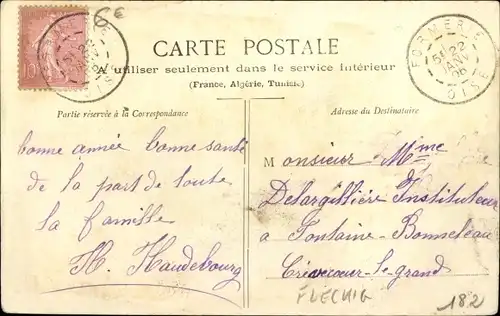 6€
10
CARTE POSTALE
A utiliser seulement dans le service Intérieur
(France, Algérie, Tunisie)
Partie réservée à la Correspondance
Adresse du Destinataire
FORMERIE
5E 22
JANV
06
OISE
bonne année bonne santé
de la part de toute
la famille
H. Haudebourg
Monsieur Mme
Delargillière Instituteur
a Fontaine-Bonneleau
Crèvecœur-le-grand
FLECHIG
182